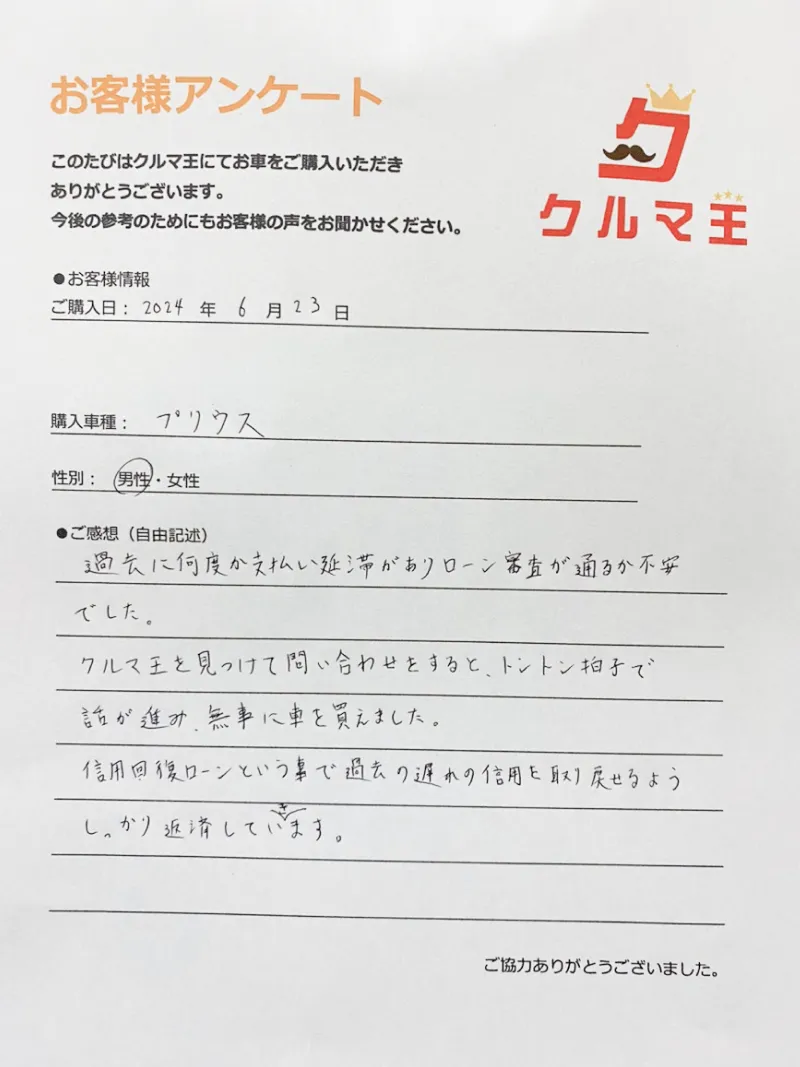 お客様アンケート
クルマ王
このたびはクルマ王にてお車をご購入いただき
ありがとうございます。
今後の参考のためにもお客様の声をお聞かせください。
●お客様情報
ご購入日： 2024 年 6 月 23 日
購入車種： プリウス
性別： 男性・女性
●ご感想（自由記述）
過去に何度か支払い延滞がありローン審査が通るか不安
でした。
クルマ王を見つけて問い合わせをすると、トントン拍子で
話が進み、無事に車を買えました。
信用回復ローンという事で過去の遅れの信用を取り戻せるよう
しっかり返済していきます。
ご協力ありがとうございました。